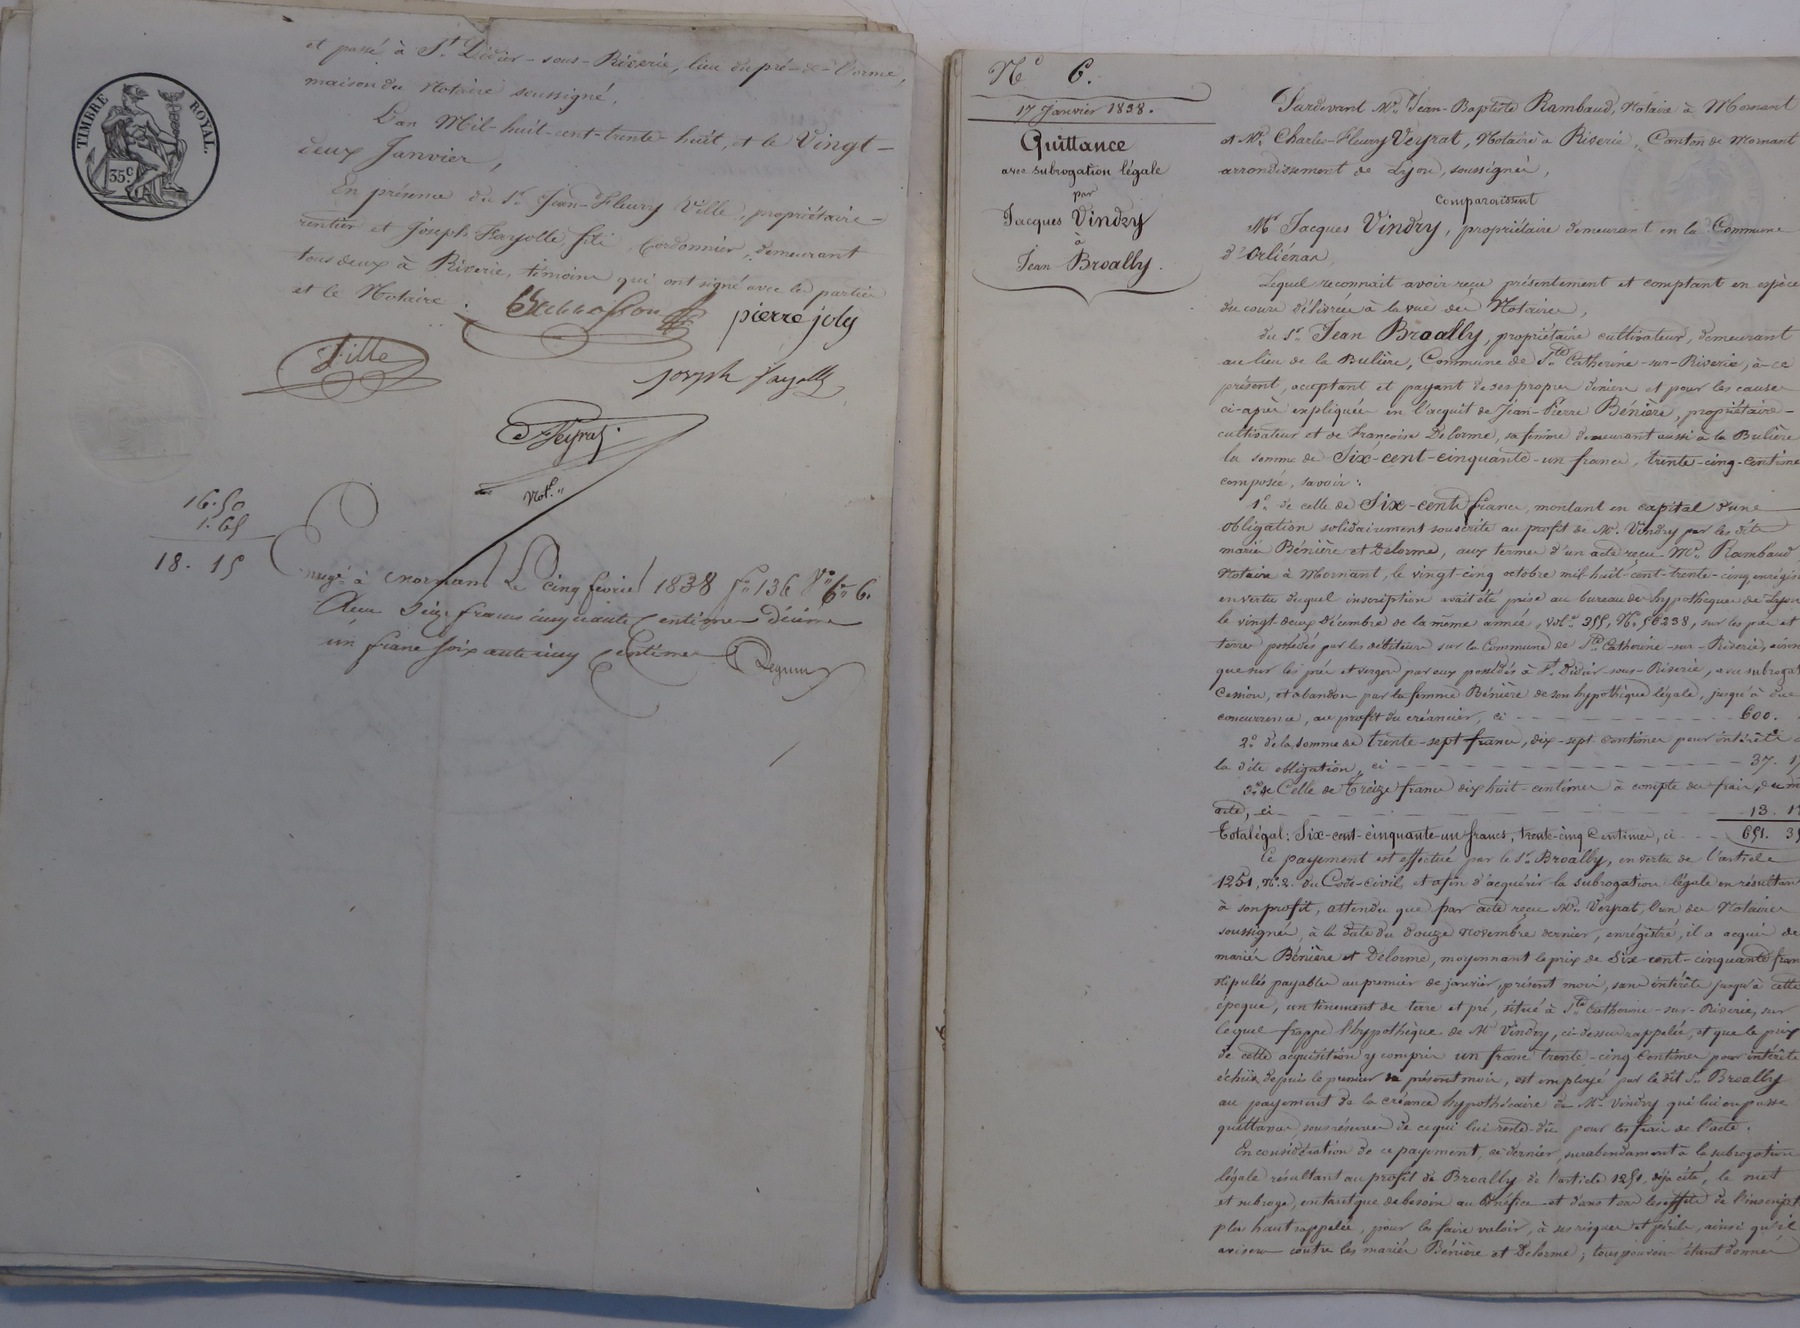 TIMBRE ROYAL.
35c
et passé à St. Didier-sous-Riverie, lieu du pré-de-l'orme,
maison du Notaire soussigné.
L'an Mil-huit-cent-trente-huit, et le Vingt-
deux Janvier,
En présence du Sr. Jean-Fleury Ville, propriétaire-
rentier et Joseph Fayolle fils, Cordonnier, demeurant
tous deux à Riverie, témoins qui ont signé avec les parties
et le Notaire.
pierre joly
Ville
joseph fayolle
Veyrat
Not.
16.50
1.65
18.15
Enregé à Mornant Le cinq février 1838 fo 136 Vo Ce 6.
Reçu Seize francs cinquante Centimes décime
un franc soixante cinq Centimes
No 6.
17 Janvier 1838.
Quittance
avec subrogation légale
par
Jacques Vindry
à
Jean Broally.
Pardevant Me. Jean-Baptiste Rambaud, Notaire à Mornant
et Me. Charles-Fleury Veyrat, Notaire à Riverie, Canton de Mornant
arrondissement de Lyon, soussignés,
Comparaissent
Mr Jacques Vindry, propriétaire demeurant en la Commune
d'Orliénas,
Lequel reconnait avoir reçu présentement et comptant en espèces
du cours délivrées à la vue des Notaires,
du Sr. Jean Broally, propriétaire cultivateur, demeurant
au lieu de la Bulière, Commune de Ste Catherine-sur-Riverie, à ce
présent, acceptant et payant de ses propres deniers et pour les causes
ci-après expliquées en l'acquit de Jean-Pierre Bénière, propriétaire-
cultivateur et de Françoise Delorme, sa femme demeurant aussi à la Bulière
la somme de Six-cent-cinquante-un francs, trente-cinq-centimes
composée, savoir:
1o. de celle de Six-cents francs, montant en capital d'une
obligation solidairement souscrite au profit de Mr. Vindry par les dits
mariés Bénière et Delorme, aux termes d'un acte reçu Me. Rambaud
Notaire à Mornant, le vingt-cinq octobre mil-huit-cent-trente-cinq enregis
en vertu duquel inscription avait été prise au bureau des hypothèques de Lyon
le vingt-deux décembre de la même année, vol. 355, No. 56238, sur les prés et
terres possédés par les débiteurs sur la Commune de Ste Catherine-sur-Riverie, ainsi
que sur les prés et verger par eux possédés à St Didier-sous-Riverie, avec subrogat
Cession, et abandon par la femme Bénière de son hypothèque légale, jusqu'à due
concurrence, au profit du créancier, ci 600.
2o. de la somme de trente-sept francs, dix-sept centimes pour intérêts
la dite obligation, ci 37. 17
3o. de Celle de treize francs dix huit-centimes à compte des frais, du
acte, ci 13. 18
Total égal: Six-cent-cinquante-un francs, trente-cinq Centimes, ci 651. 35
Ce payement est effectué par le Sr. Broally, en vertu de l'article
1251, No. 2. du Code-civil, et afin d'acquérir la subrogation légale en résultant
à son profit, attendu que par acte reçu Me. Veyrat, l'un des Notaires
soussignés, à la date du douze Novembre dernier, enregistré, il a acquis des
mariés Bénière et Delorme, moyennant le prix de Six-cent-cinquante francs
stipulés payables au premier de janvier, présent mois, sans intérêts jusqu'à cette
époque, un tènement de terre et pré, situé à Ste Catherine-sur-Riverie, sur
lequel frappe l'hypothèque de Mr Vindry, ci-dessus rappelée, et que le prix
de cette acquisition y compris un franc trente-cinq Centimes pour intérêts
échus depuis le premier du présent mois, est employé par le dit Sr. Broally
au payement de la créance hypothécaire de Mr. Vindry qui lui en passe
quittance sous réserve de ce qui lui reste dû pour les frais de l'acte.
En considération de ce payement, ce dernier, surabondamment à la subrogation
légale résultant au profit de Broally de l'article 1251. déjà cité, le met
et subroge, en tant que de besoin au bénéfice et dans tous les effets de l'inscript
plus haut rappelée, pour la faire valoir, à ses risques et périls, ainsi qu'il
avisera contre les mariés Bénière et Delorme; tous pouvoirs étant donnés